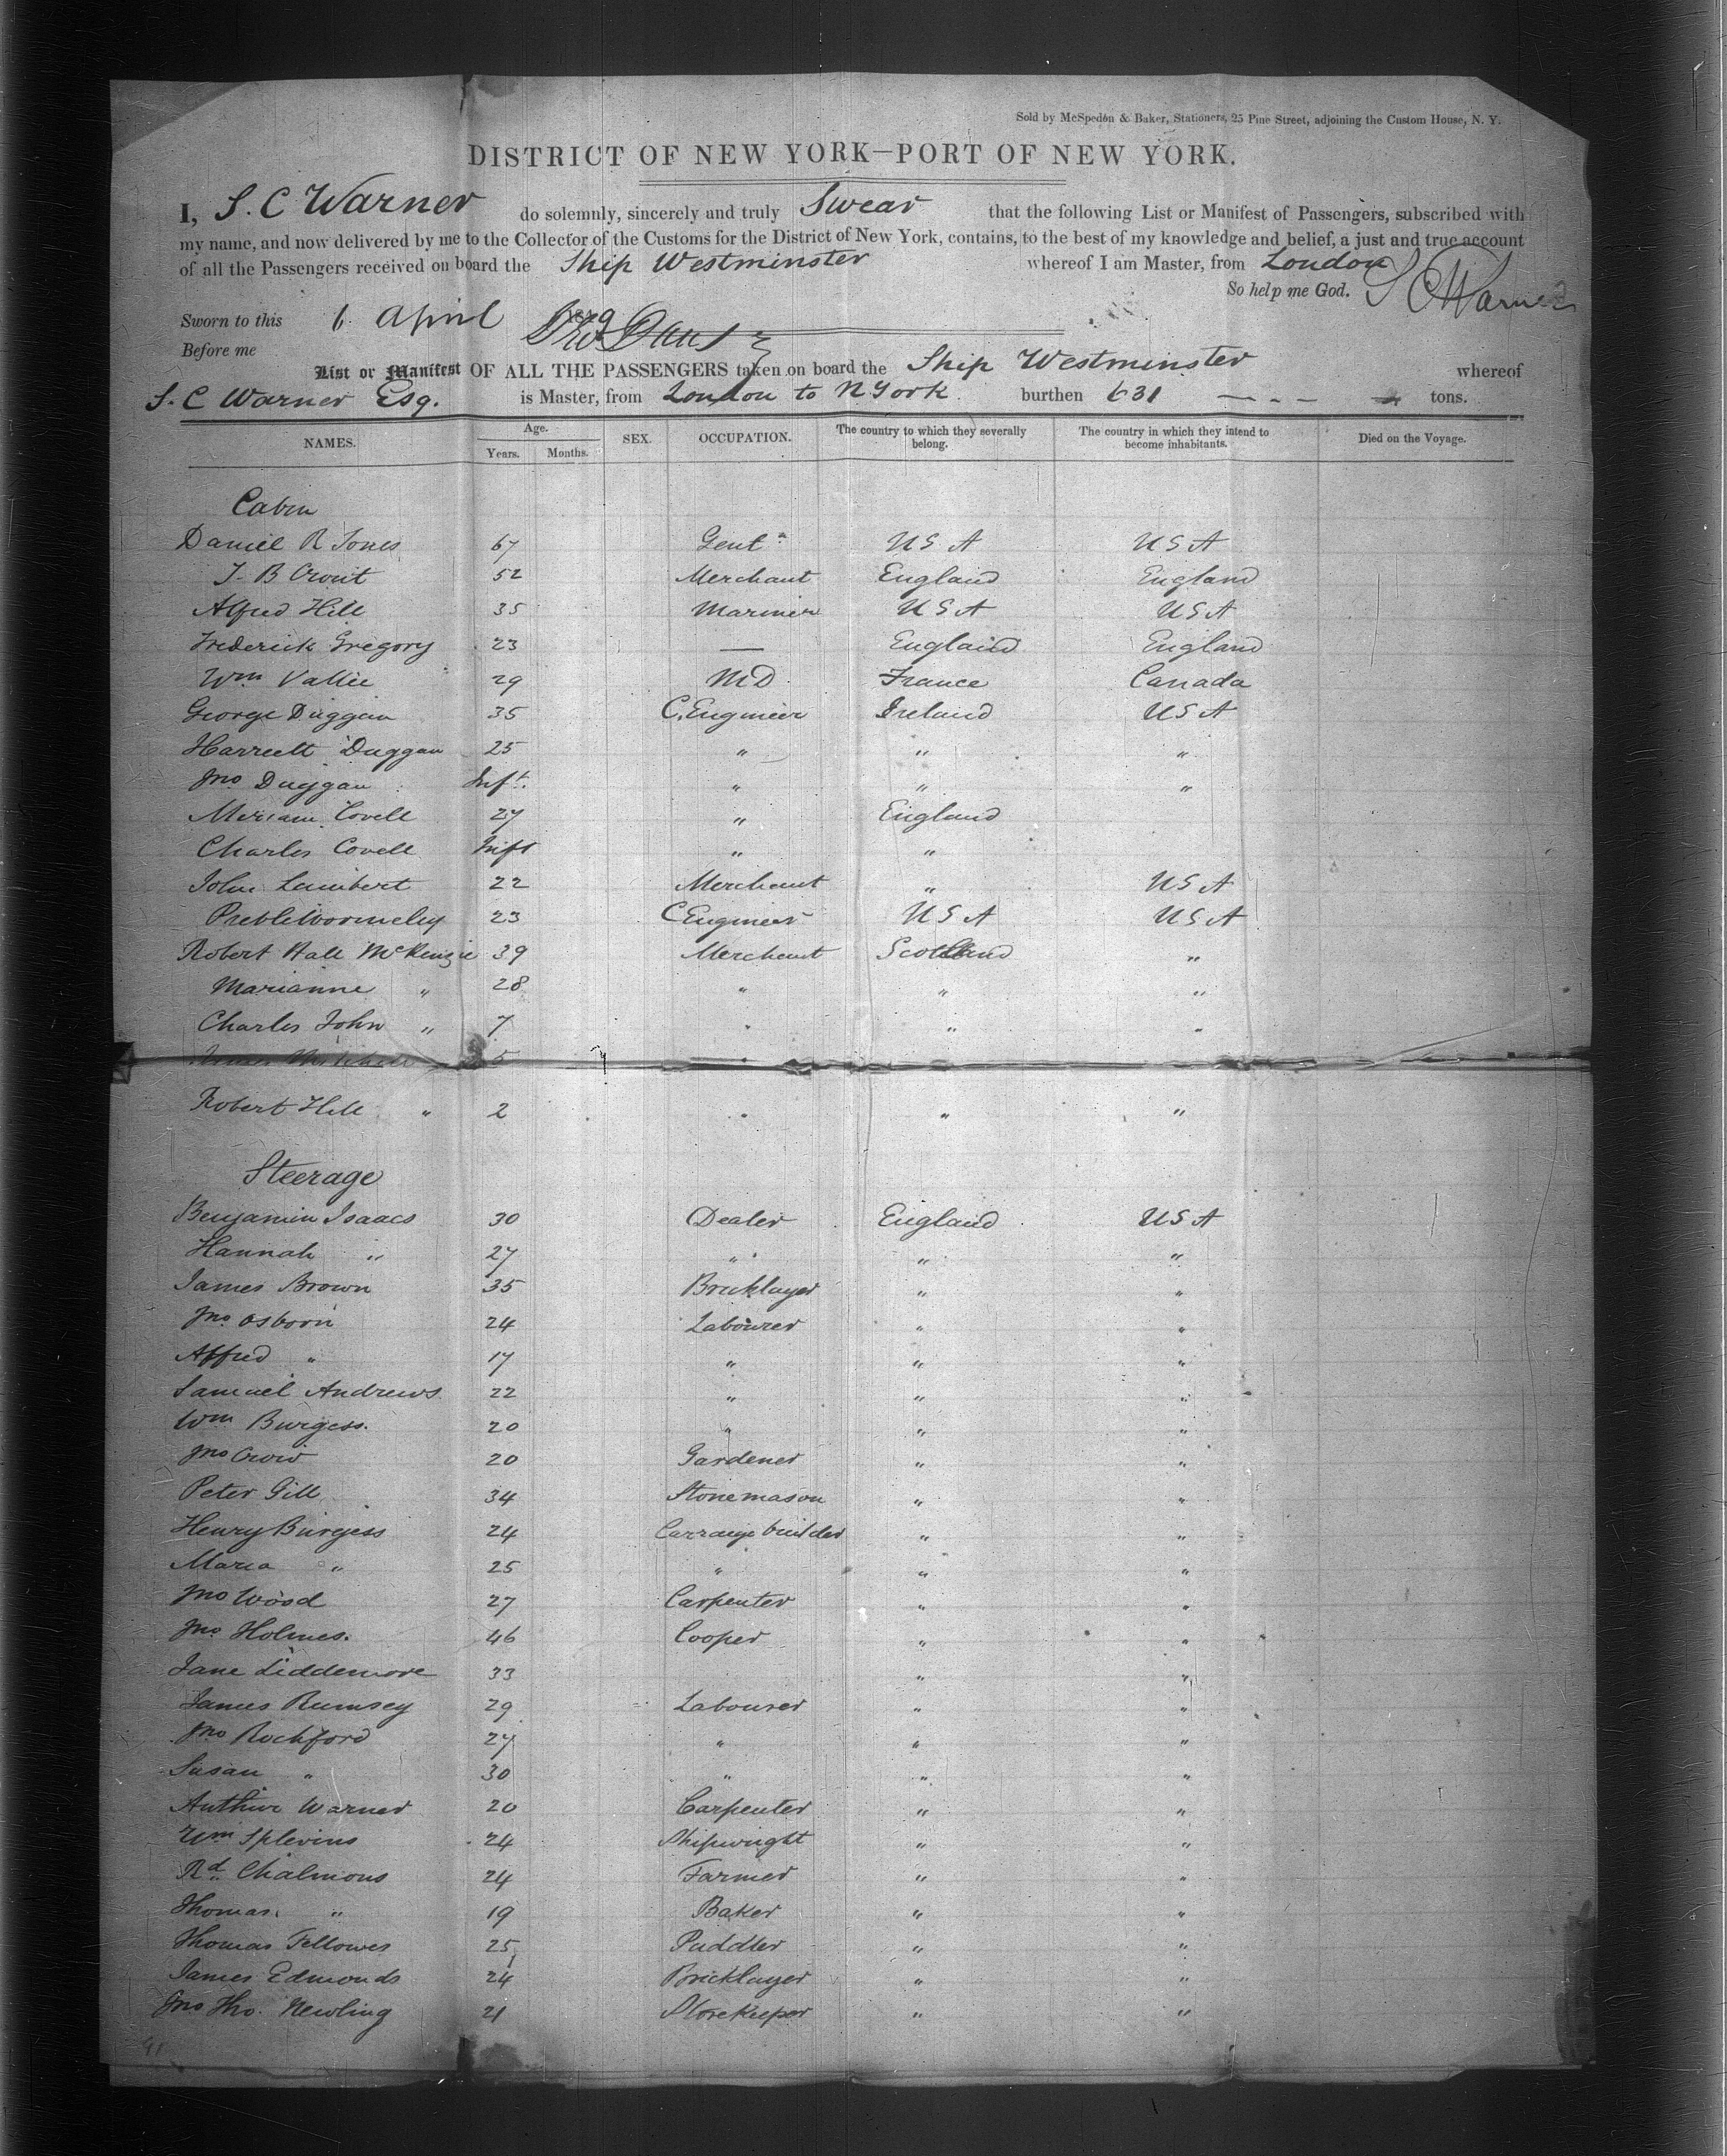 Sold by McSpedon & Baker, Stationers, 25 Pine Street, adjoining the Custom House, N. Y.
DISTRICT OF NEW YORK—PORT OF NEW YORK.
I, S. C Warner do solemnly, sincerely and truly Swear that the following List or Manifest of Passengers, subscribed with
my name, and now delivered by me to the Collector of the Customs for the District of New York, contains, to the best of my knowledge and belief, a just and true account
of all the Passengers received on board the Ship Westminster whereof I am Master, from London
So help me God. S C Warner
Sworn to this 6 April
Before me
List or Manifest OF ALL THE PASSENGERS taken on board the Ship Westminster whereof
S. C Warner Esq. is Master, from London to N York burthen 631 tons.
NAMES. Age. Years. Months. SEX. OCCUPATION. The country to which they severally belong. The country in which they intend to become inhabitants. Died on the Voyage.
Cabin
Daniel R Jones 67 Gent n USA USA
J. B Crout 52 Merchant England England
Alfred Hill 35 Mariner USA USA
Frederick Gregory 23 — England England
Wm Vallee 29 MD France Canada
George Duggan 35 C. Engineer Ireland USA
Harriett Duggan 25 " " "
Jno Duggan Inft. " " "
Meriam Covell 27 " England
Charles Covell Inft " "
John Lambert 22 Merchant " USA
Preble Wormeley 23 C Engineer USA USA
Robert Hall McKenzie 39 Merchant Scotland "
Marianne " 28 " " "
Charles John " 7 " " "
5 "
Robert Hill " 2 " " "
Steerage
Benjamin Isaacs 30 Dealer England USA
Hannah " 27 " " "
James Brown 35 Bricklayer " "
Jno Osborn 24 Labourer " "
Alfred " 17 " " "
Samuel Andrews 22 " " "
Wm Burgess. 20 " " "
Jno 20 Gardener " "
Peter Gill 34 Stonemason " "
Henry Burgess 24 Carraige builder " "
Maria " 25 " " "
Jno Wood 27 Carpenter " "
Jno Holmes. 46 Cooper " "
Jane Liddemore 33 " "
James Rumsey 29 Labourer " "
Jno Rochford 27 " " "
Susan " 30 " " "
Authur Warner 20 Carpenter " "
Wm Splevins 24 Shipwright " "
Rd Chalmons 24 Farmer " "
Thomas " 19 Baker " "
Thomas Fellowes 25 Puddler " "
James Edmonds 24 Bricklayer " "
Jno Tho. Newling 21 Storekeeper " "
91